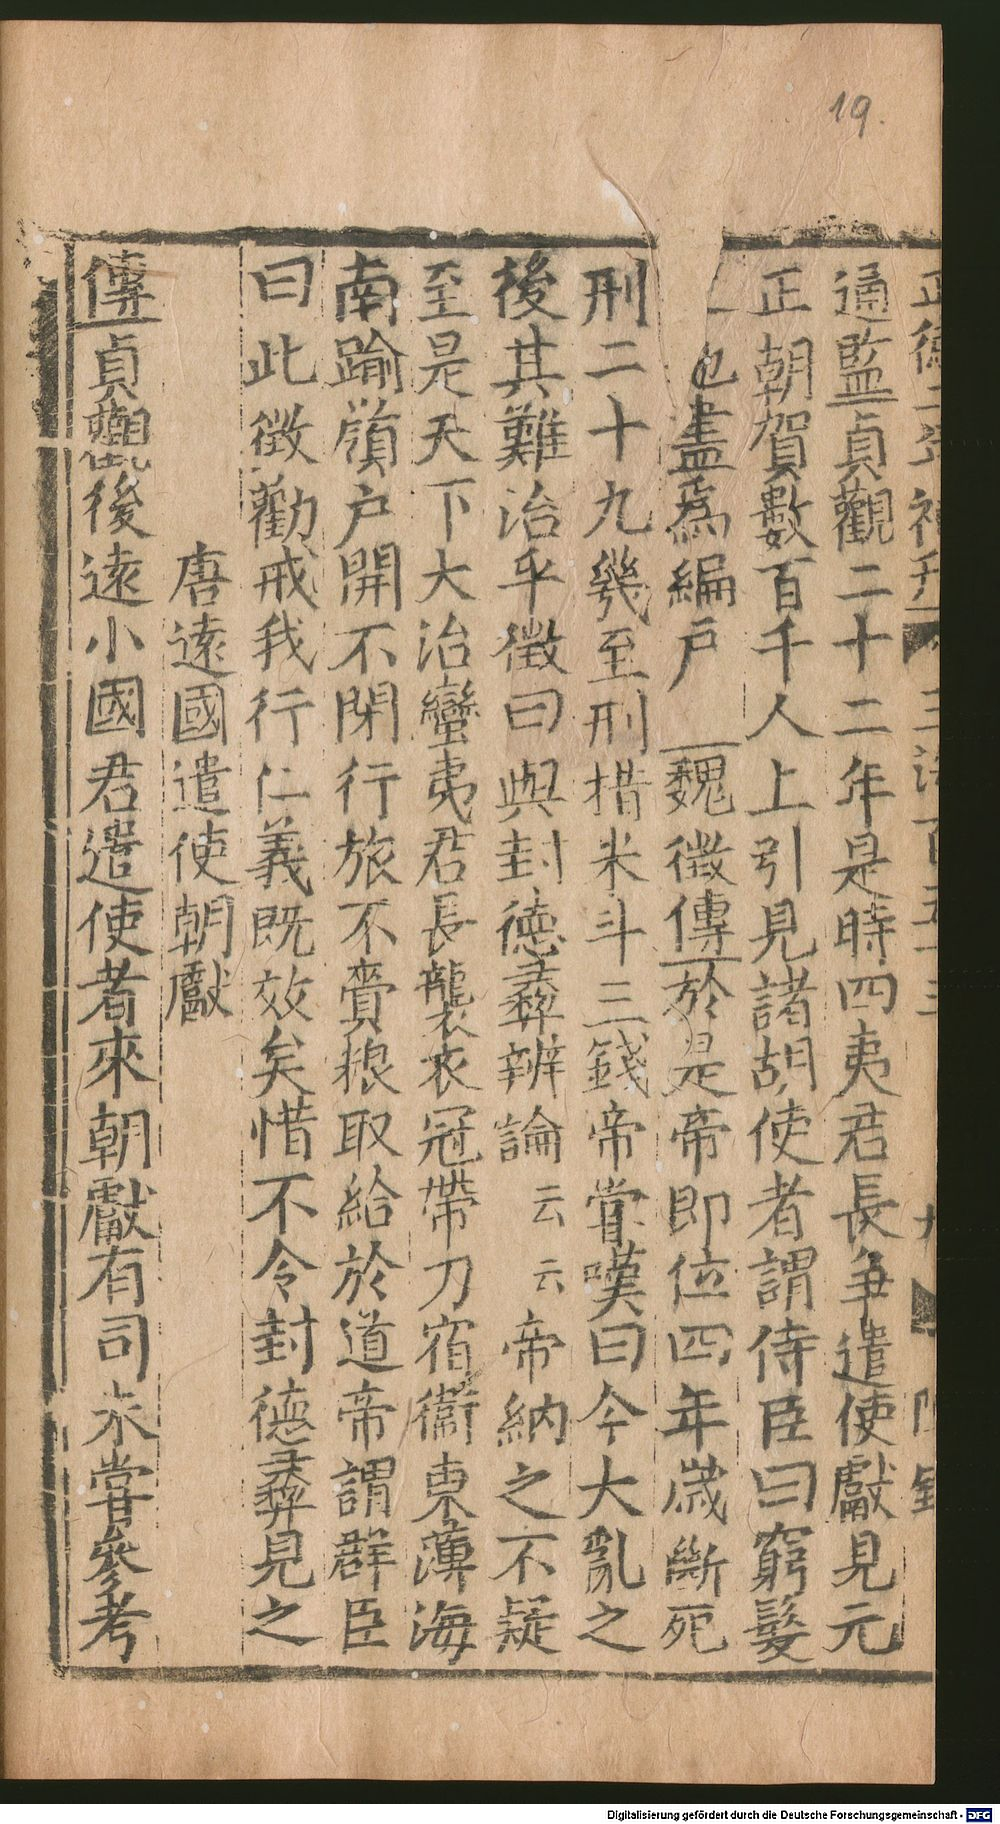 19.
正德二年補刊 玉海一百五十三 九
通監貞觀二十二年是時四夷君長爭遣使獻見元
正朝賀數百千人上引見諸胡使者謂侍臣曰窮髮
之地盡為編戶 魏徵傳於是帝即位四年歲斷死
刑二十九幾至刑措米斗三錢帝嘗嘆曰今大亂之
後其難治乎徵曰與封德彝辨論云云帝納之不疑
至是天下大治蠻夷君長襲衣冠帶刀宿衛東薄海
南踰嶺戶開不閉行旅不賫粮取給於道帝謂群臣
曰此徵勸戒我行仁義既效矣惜不令封德彝見之
唐遠國遣使朝獻
傳貞觀後遠小國君遣使者來朝獻有司未嘗參考
Digitalisierung gefördert durch die Deutsche Forschungsgemeinschaft - DFG